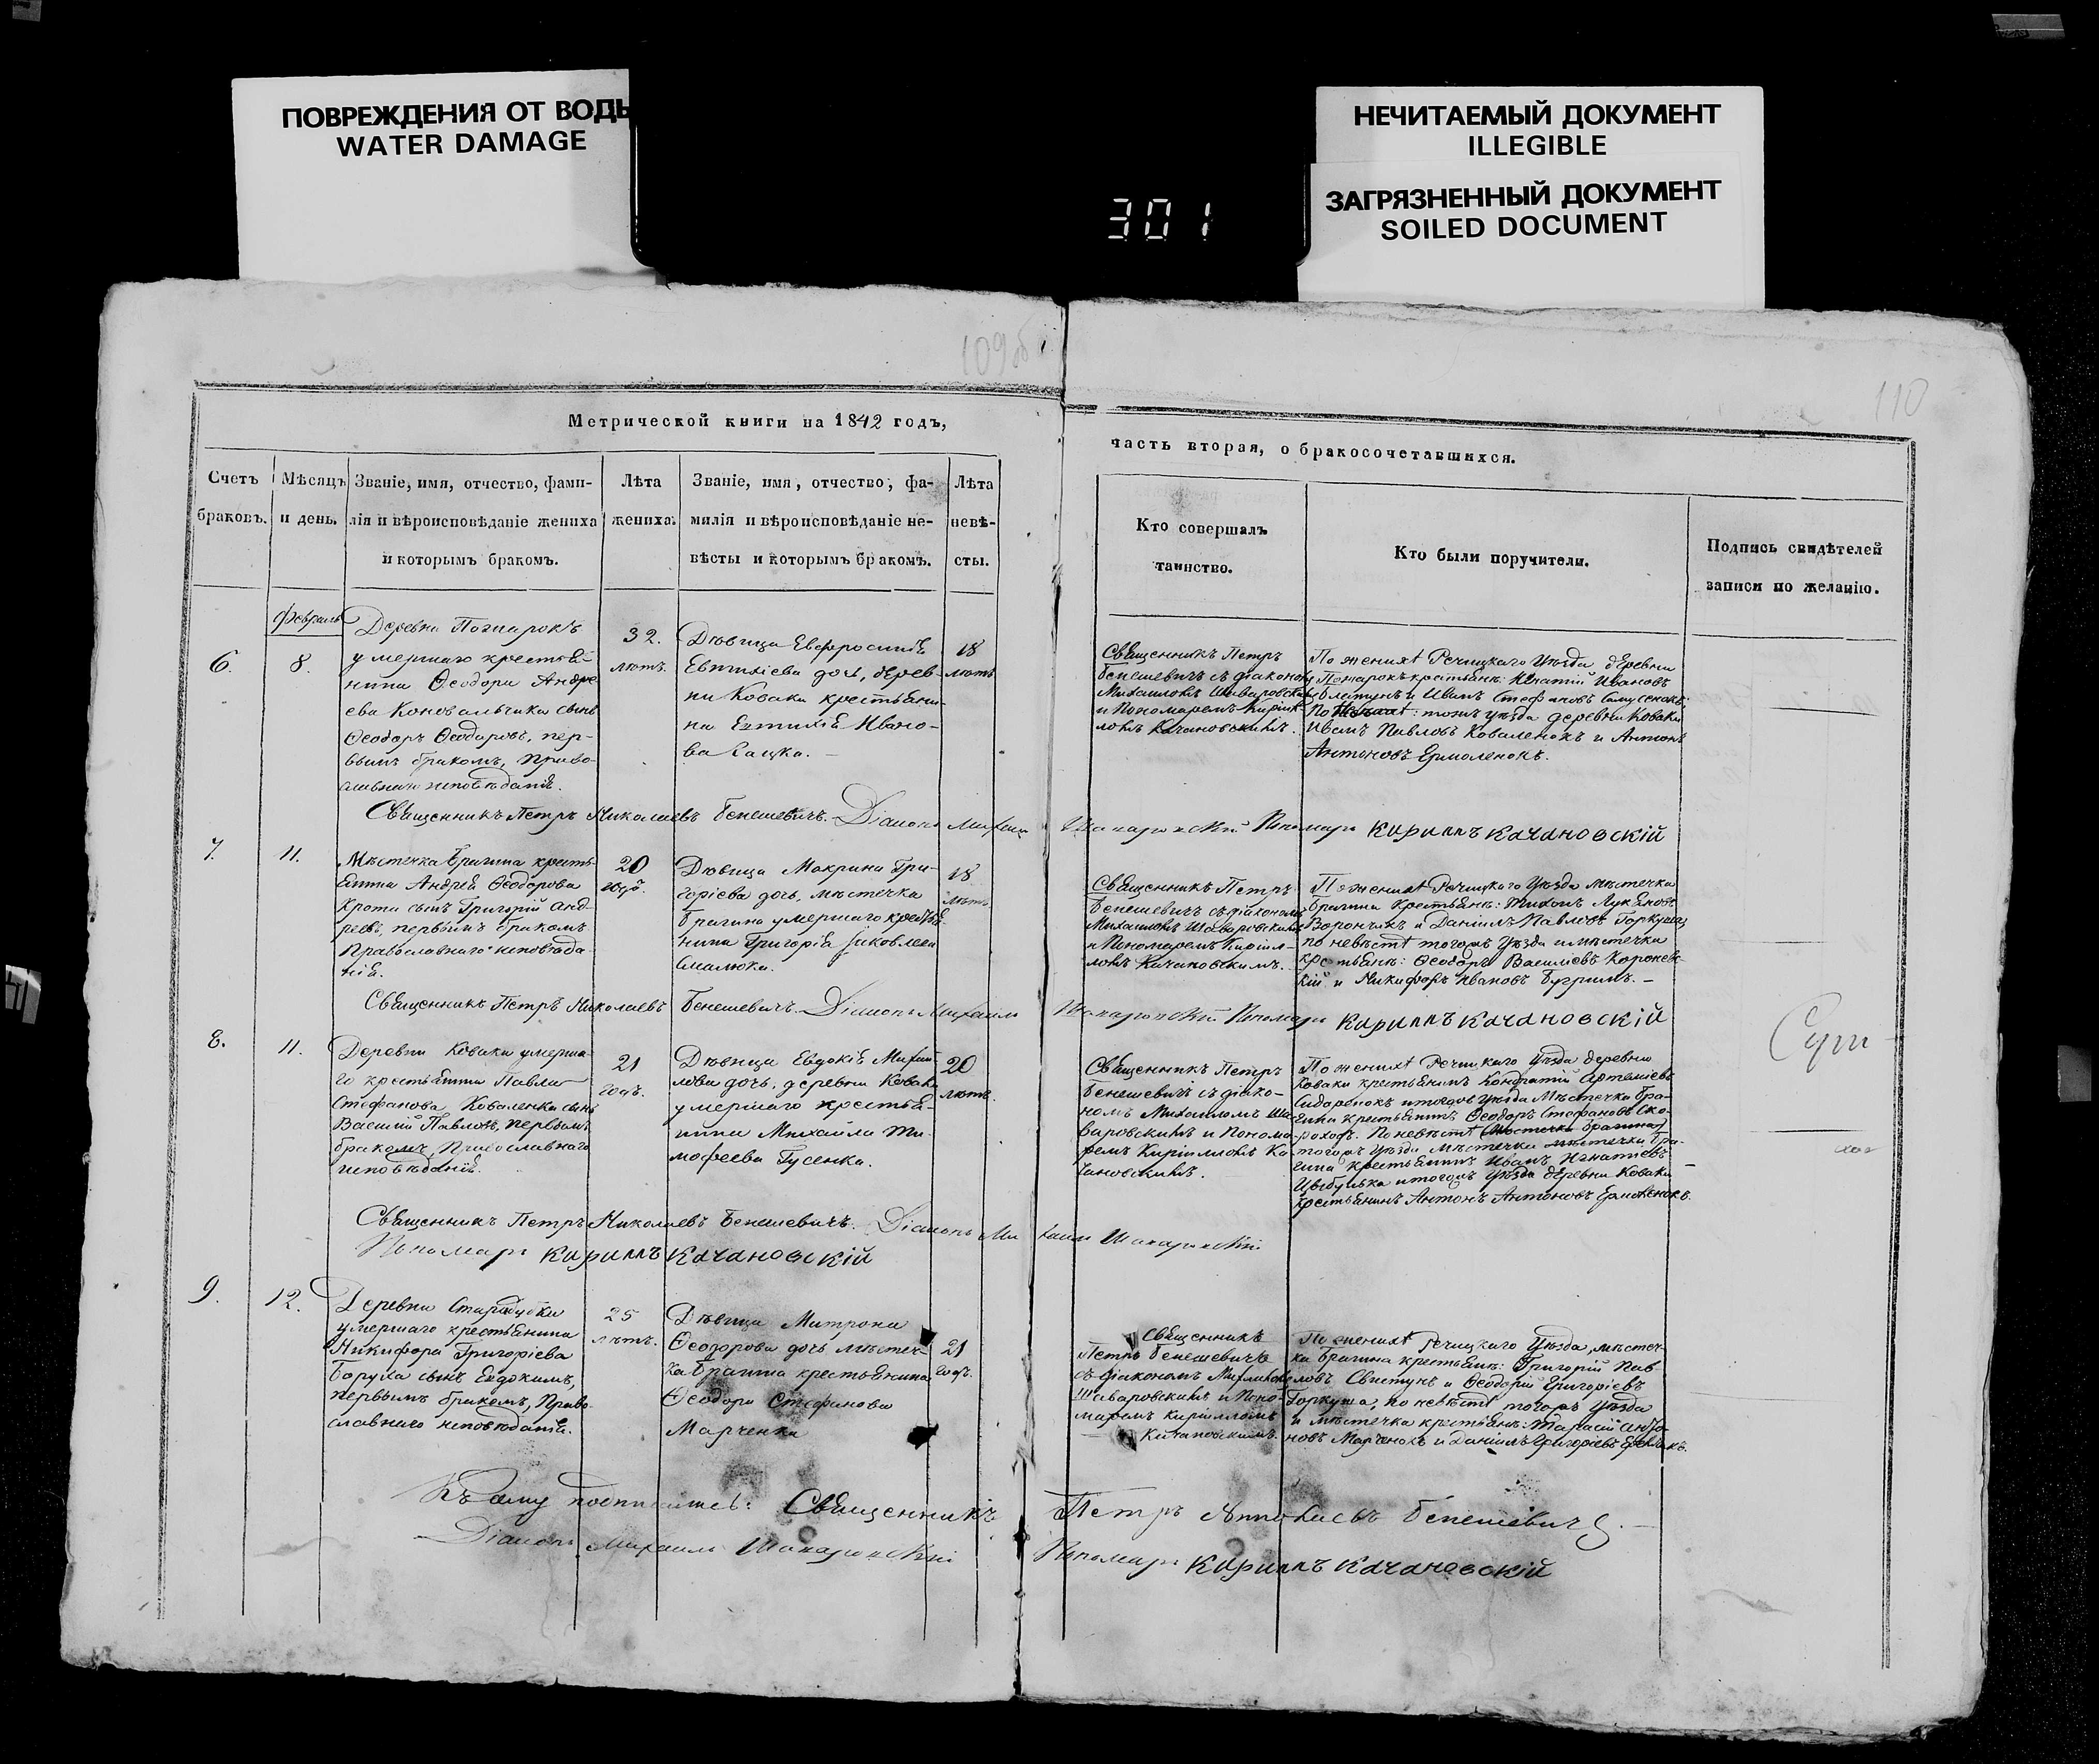 ПОВРЕЖДЕНИЯ ОТ ВОДЫ
WATER DAMAGE
НЕЧИТАЕМЫЙ ДОКУМЕНТ
ILLEGIBLE
ЗАГРЯЗНЕННЫЙ ДОКУМЕНТ
SOILED DOCUMENT
301
109об
110
Метрической книги на 1842 годъ,
часть вторая, о бракосочетавшихся.
Счетъ
браковъ.
Мѣсяцъ
и день.
Званіе, имя, отчество, фами-
лія и вѣроисповѣданіе жениха
и которымъ бракомъ.
Лѣта
жениха.
Званіе, имя, отчество, фа-
милія и вѣроисповѣданіе не-
вѣсты и которымъ бракомъ.
Лѣта
невѣ-
сты.
Кто совершалъ
таинство.
Кто были поручители.
Подпись свидѣтелей
записи по желанію.
Февраль
6.
8.
Деревни Пожарокъ
умершаго крестья-
нина Ѳеодора Андре
ева Коновальчика сынъ
Ѳеодоръ Ѳеодоровъ, пер-
вымъ бракомъ, право-
славнаго исповѣданія.
32.
лѣтъ.
Дѣвица Евфросинія
Евтихіева дочь, дерев-
ни Коваки крестьяни-
на Евтихія Ивано-
ва Сацка.
18
лѣтъ
Священникъ Петръ
Бенешевичъ съ діакономъ
Михаиломъ Шаваровскимъ
и Пономаремъ Кирил-
ломъ Качановскимъ.
По женихѣ Речицкаго уѣзда деревни
Пожарокъ крестьян: Игнатій Ивановъ
и Иванъ Стефановъ
По невѣстѣ: тожъ уѣзда деревни Коваки
Иванъ Павловъ Коваленокъ и Антонъ
Антоновъ Ермоленокъ.
Священникъ Петръ Николаевъ Бенешевичъ. Діаконъ Михаилъ Шаваровскій Пономарь Кириллъ Качановскій
7.
11.
Мѣстечка Брагина кресть-
янина Андрея Ѳеодорова
Крота сынъ Григорій Анд-
реевъ, первымъ бракомъ
Православнаго исповѣда-
нія.
20
годъ.
Дѣвица Макрина Гри-
горіева дочь, мѣстечка
Брагина умершаго крестья-
нина Григорія Яковлева
Смалюка.
18
лѣтъ
Священникъ Петръ
Бенешевичъ съ діакономъ
Михаиломъ Шаваровскимъ
и Пономаремъ Кирил-
ломъ Качановскимъ.
По женихѣ Речицкаго уѣзда мѣстечка
Брагина крестьян: Тихонъ Лукьяновъ
Ворончикъ и Даніилъ Павловъ Горкуша;
по невѣстѣ тогожъ уѣзда и мѣстечка
крестьян: Ѳеодоръ Василіевъ Кароневс-
кій и Никифоръ Ивановъ Бугримъ.
Священникъ Петръ Николаевъ Бенешевичъ. Діаконъ Михаилъ Шаваровскій Пономарь Кириллъ Качановскій
8.
11.
Деревни Коваки умерша-
го крестьянина Павла
Стефанова Коваленка сынъ
Василій Павловъ, первымъ
бракомъ, Православнаго
исповѣданія.
21
годъ.
Дѣвица Евдокія Михаи-
лова дочь, деревни Коваки
умершаго крестья-
нина Михаила Ти-
мофеева Гусенка.
20
лѣтъ.
Священникъ Петръ
Бенешевичъ съ діако-
номъ Михаиломъ Ша-
варовскимъ и Понома-
ремъ Кирилломъ Ка-
чановскимъ.
По женихѣ Речицкаго уѣзда деревни
Коваки крестьянинъ Кондратій Артеміевъ
Сидоренокъ и тогожъ уѣзда Мѣстечка Бра-
гина крестьянинъ Ѳеодоръ Стефановъ Ско-
роходъ. По невѣстѣ мѣстечка Брагина
тогожъ уѣзда Мѣстечка мѣстечка Бра-
гина крестьянинъ Иванъ Игнатіевъ
Цыбулька и тогожъ уѣзда деревни Коваки
крестьянинъ Антонъ Антоновъ Ермоленокъ.
Священникъ Петръ Николаевъ Бенешевичъ. Діаконъ Михаилъ Шаваровскій
Пономарь Кириллъ Качановскій
9.
12.
Деревни Старадубки
умершаго крестьянина
Никифора Григоріева
Боруха сынъ Евдокимъ,
первымъ бракомъ, Право-
славнаго исповѣданія.
25
лѣтъ.
Дѣвица Митрона
Ѳеодорова дочь мѣстеч-
ка Брагина крестьянина
Ѳеодора Стефанова
Марченка
21
годъ.
Священникъ
Петръ Бенешевичъ
съ діакономъ Михаиломъ
Шаваровскимъ и Поно-
маремъ Кирилломъ
Качановскимъ.
По женихѣ Речицкаго уѣзда, мѣстеч-
ка Брагина крестьян: Григорій Пав-
ловъ Свистунъ и Ѳеодоръ Григоріевъ
Горкуша, по невѣстѣ тогожъ уѣзда
и мѣстечка крестьян: Тарасій
Марченокъ и Даніилъ Григоріевъ
Къ сему подписались: Священникъ Петръ Бенешевичъ.
Діаконъ Михаилъ Шаваровскій Пономарь Кириллъ Качановскій